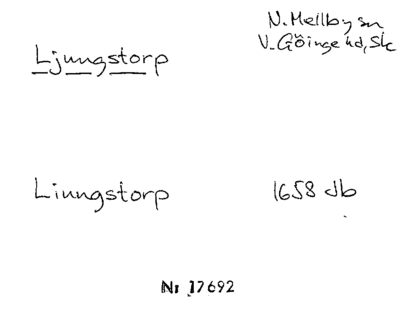 N. Mellby sn
V. Göinge hd, Sk
Ljungstorp
Liungstorp 1658 db
Nr 17692